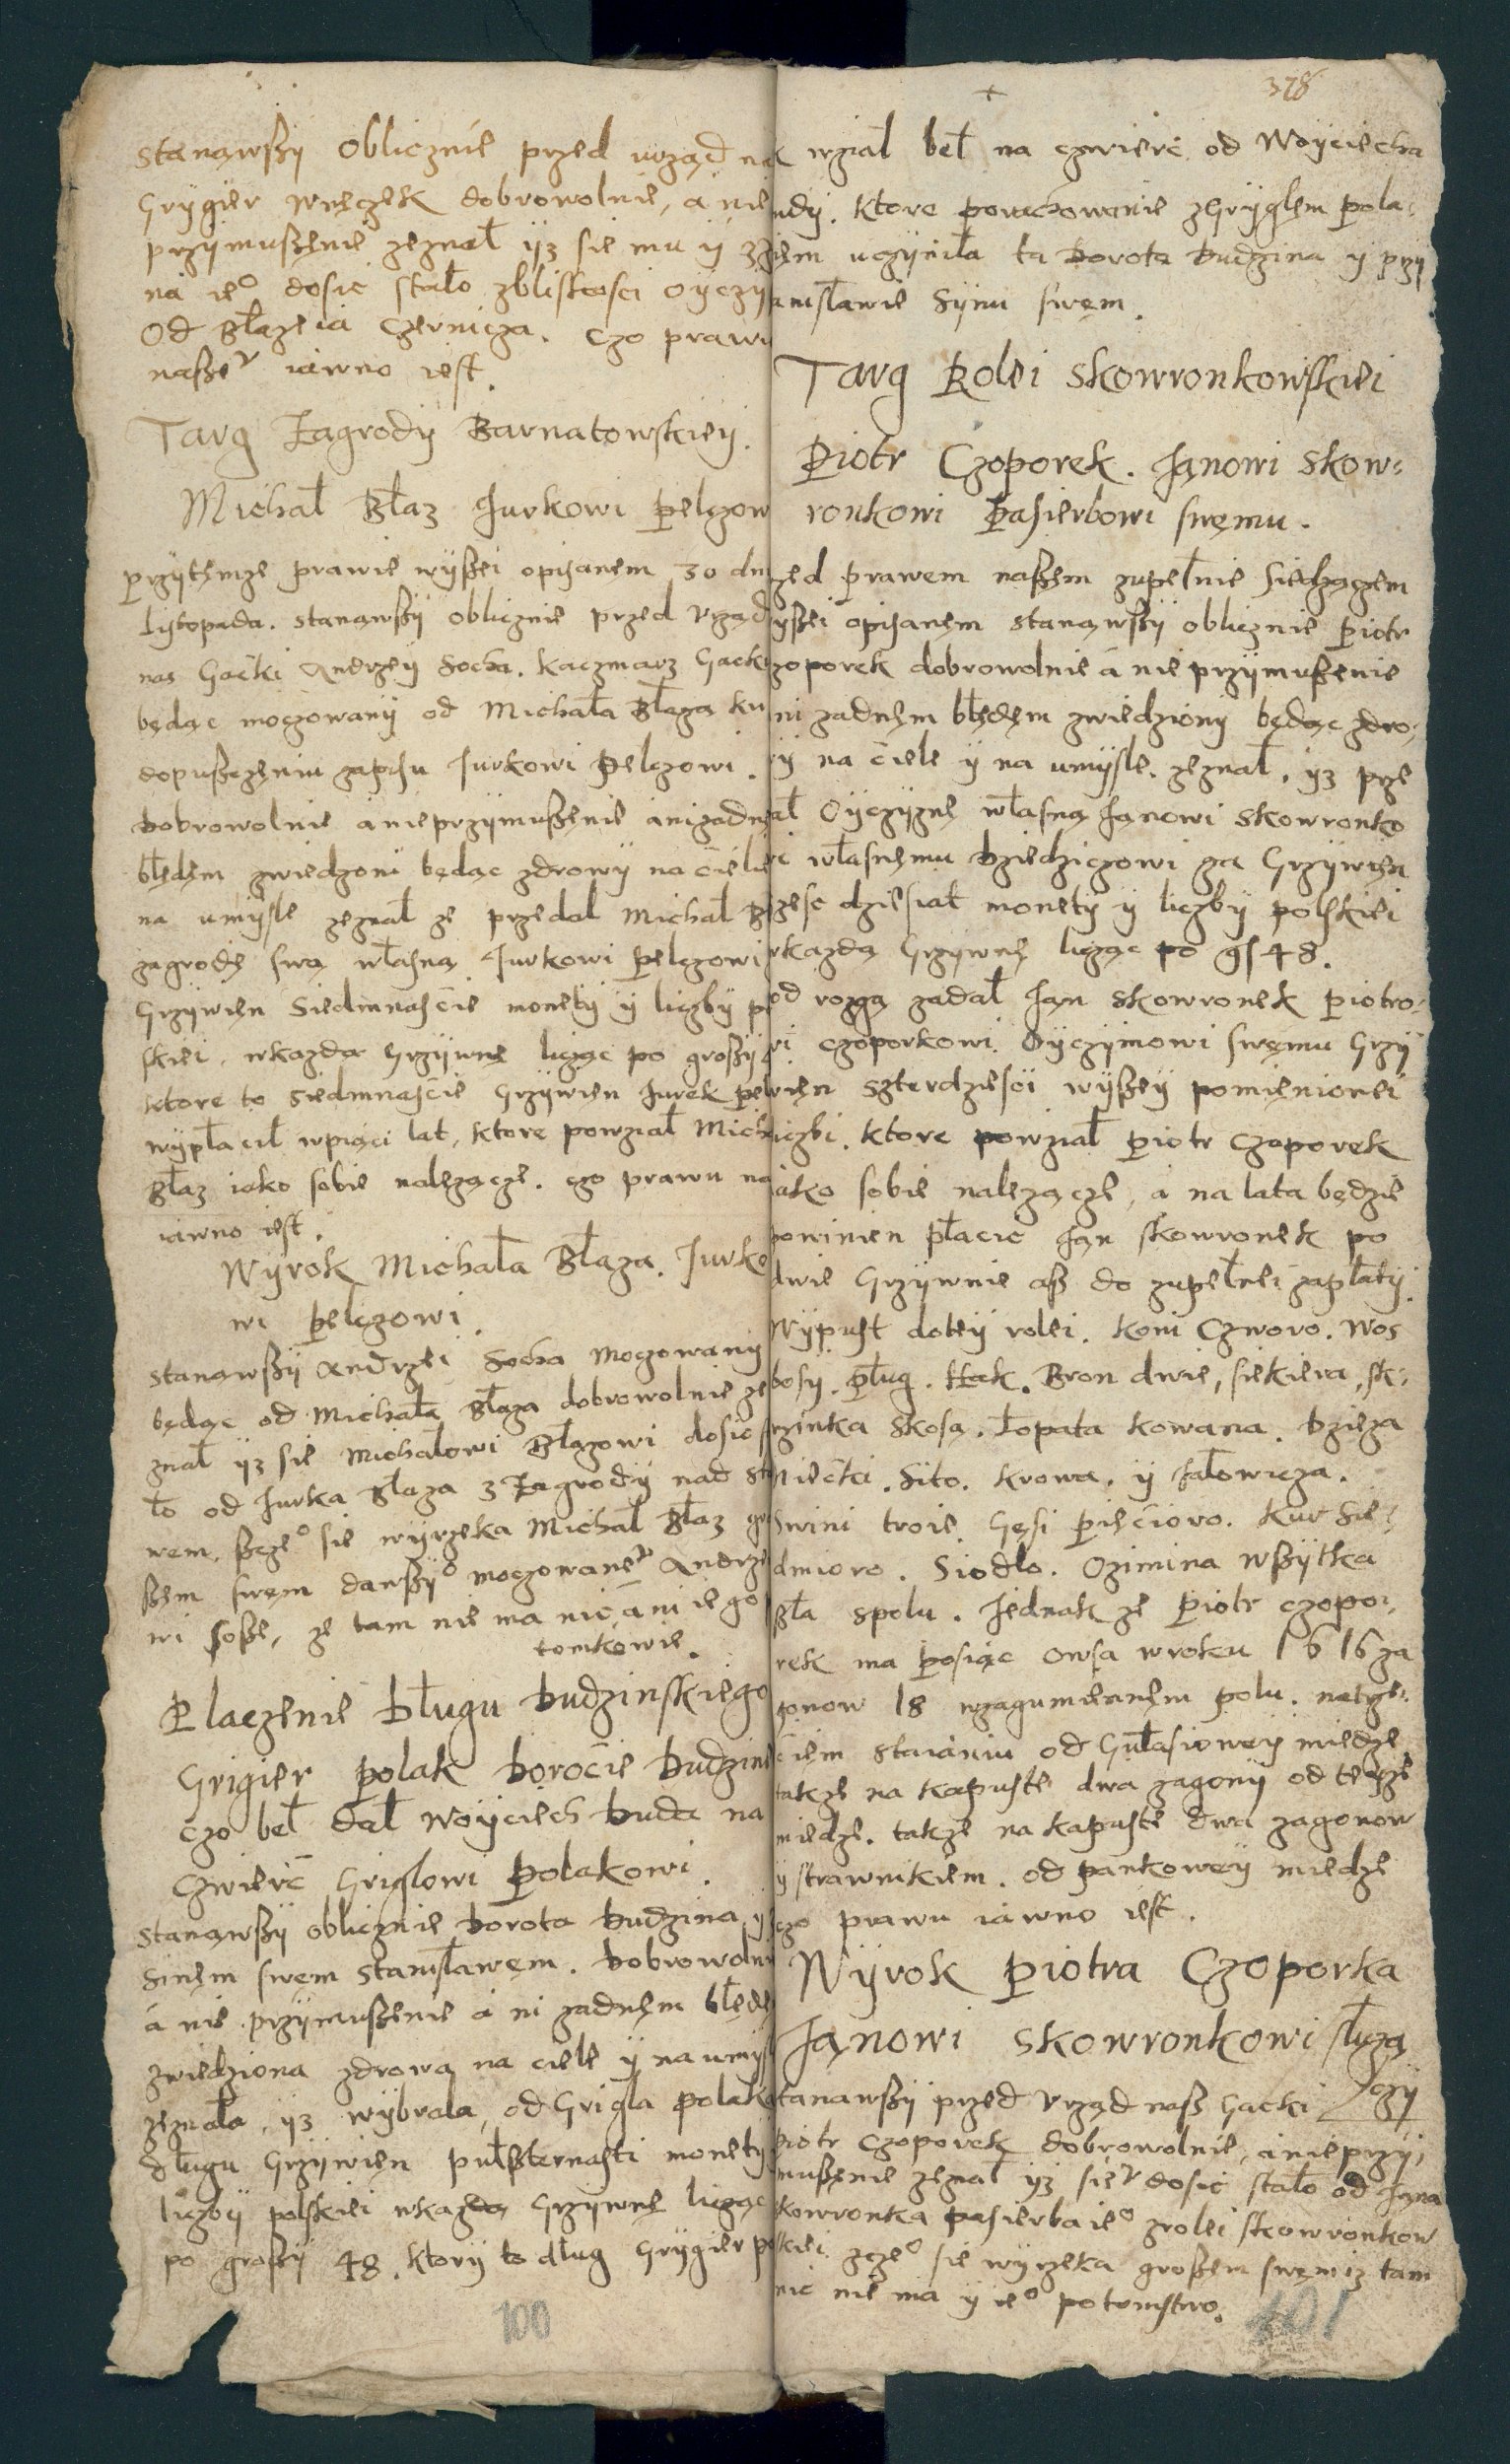 stanąwßÿ Oblicznie przed urząd na
Grÿgier wnęczek dobrowolnie, a nie
przÿmußenie zeznał ÿz sie mu ÿ
na ieº dosic stało zblißkosci oÿczÿ
Od Błazeia Czernicza. Czo praw
naßeᵛ iawno iest.
Targ Zagrodÿ Barnatowskieÿ.
Michał Błaz Jurkowi Pelczow
przÿtÿmze prawie wÿßei opisanem 30 dn
Lÿstopada. stanąwßÿ oblicznie przed Vrząd
nas Gaćki Andrzeÿ Socha. Kaczmarz Gacki
będąc moczowanÿ od Michała Błaza ku
dopußczęniu zapisu Jurkowi Pelczowi.
dobrowolnie a nieprzÿmußęnie ani zadnę
błędęm zwiedzoni będąc zdrowÿ na ciele
na umÿsle zeznał ze przedal Michał B
zagrodę swą własną Jurkowi Pelczowi
Grzÿwięn Siedmnascie monetÿ ÿ liczbÿ po
skiei. wkazda Grzÿwnę licząc po großÿ
ktore to siedmnascie Grzÿwięn Jurek Pel
wÿpłacił wpięci lat, ktore powział Mich
Błaz iako sobie nalezącze. czo prawu na
iawno iest.
Wÿrok Michała Błaza. Jurko
wi Pelczowi.
stanąwßÿ Andrzei Socha Moczowanÿ
będąc od Michała Błaza dobrowolnie ze
znał ÿz sie Michałowi Błazowi dosic s
ło od Jurka Błaza z Zagrodÿ nad st
wem. ßczeº sie wÿrzeka Michał Błaz gro
ßem swęm dawßÿº moczowaneᵛ Andrze
wi soße, ze tam nie ma nic ani iego
tomkowie.
Placzenie Długu Dudzinskiego
Grigier Polak Dorocie Dudzine
czo beł dał Woÿciech Duda na
czwierć Griglowi Polakowi.
stanąwßÿ oblicznie Dorota Dudzina ÿ
Sinęm swęm Stanisławęm. Dobrowoln
a nie przÿmußenie a ni zadnęm błędę
zwiedziona zdrową na ciele ÿ na umÿs
zeznała, ÿz wÿbrała, od Grigla Polak
długu Grzÿwięn pułßternasti monetÿ
liczbÿ polskiei wkazdą Grzÿwnę licząc
po großÿ 48. ktorÿ to dług Grÿgier po

378
wział beł na czwierć od Woÿciecha
udÿ. ktore porachowanie zGrÿglęm Pola,
ięm uczÿniła ta Dorota Dudzina ÿ przÿ
anisławie Sÿnu swęm.
Targ Rolei Skowronkowskiei
Piotr Czoporek. Jąnowi Skow,
ronkowi Pasierbowi swęmu.
zed prawem naßem zupełnie siedzączem
ÿßei opisanęm stanąwßÿ oblicznie Piotr
zoporek dobrowolnie a nie przÿmußenie
ni zadnęm błędęm zwiedzionÿ będąc zdro,
ÿ na ciele ÿ na umÿsle. zeznał, ÿz prze
ał Oÿczÿznę własną Jąnowi Skowronko
i własnęmu Dziedziczowi za Grzÿwięn
zesc dziesiat monetÿ ÿ liczbÿ polskiei
wkazdą Grzÿwnę licząc po gs 48.
od rozgą zadał Jąn Skowronek Piotro,
wi Czoporkowi. Oÿczÿmowi swęmu Grzÿ
więn szterdziesci wÿßeÿ pomięnionei
liczbi. ktore powział Piotr Czoporek
iako sobie nalezącze, a na lata będzie
powinien płacic Jąn Skowronek po
dwie Grzÿwnie aß do zupełnei zapłatÿ.
Wÿpust doteÿ rolei. koni Czworo. Wos
bosÿ. pług. Hak. Bron dwie, siekiera, sk,
rzinka skosą. Łopata kowana. Dzieza
Niećki. Sito. krowa, ÿ Jałowicza.
swini troie. Gęsi Pięcioro. Kur Sie,
dmioro. Siodło. Ozimina wßÿtka
zła spolu. Jednak ze Piotr Czopo,
rek ma posiąc owsa wroku 1616 za
gonow 18 wzagumienęm polu. natrze,
ciem staianiu od Gułasioweÿ miedze
takze na kapuste dwa zagonÿ od teÿze
miedze. takze na kapuste dwa zagonow
ÿ strawnikiem. od pankoweÿ miedze
czo prawu iawno iest.
Wÿrok Piotra Czoporka
Jąnowi Skowronkowi słuzą
czÿ
tanąwßÿ przed Vrząd naß Gacki
Piotr Czoporek dobrowolnie, a nie przÿ,
mußęnie zeznał ÿz sieᵛ dosic stało od Jąna
kowronka pasierba ieº zrolei skowronkow
skiei. zczeº sie wÿrzeka großem swęm iz tam
nic nie ma ÿ ieº potomstwo.
100
101